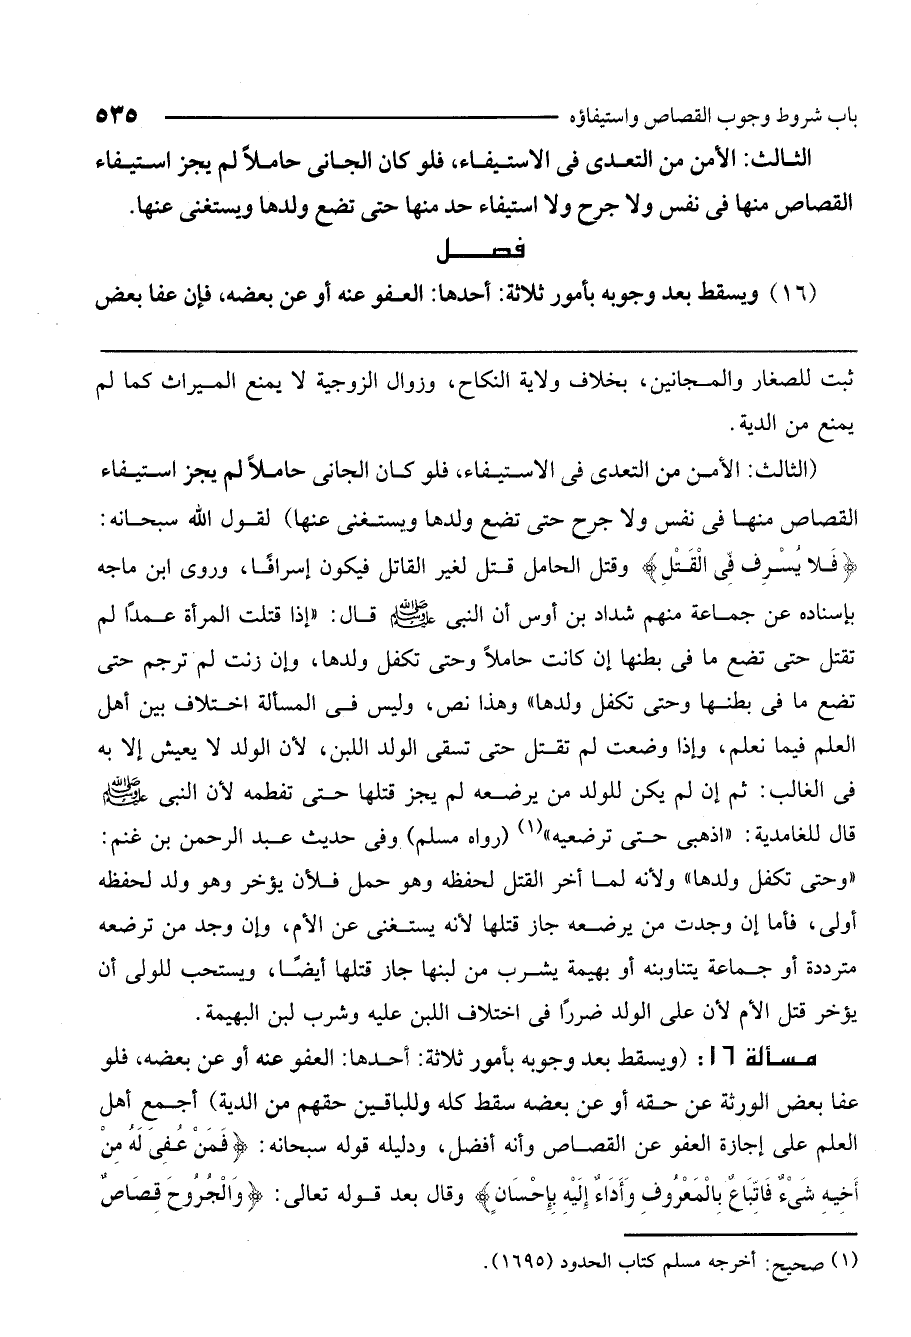 باب شروط وجوب القصاص واستيفاؤه ٥٣٥
الثالث: الأمن من التعدى فى الاستيفاء، فلو كان الجانى حاملاً لم يجز استيفاء
القصاص منها فى نفس ولا جرح ولا استيفاء حد منها حتى تضع ولدها ويستغنى عنها.
فصل
(١٦) ويسقط بعد وجوبه بأمور ثلاثة: أحدها: العفو عنه أو عن بعضه، فإن عفا بعض
ثبت للصغار والمجانين، بخلاف ولاية النكاح، وزوال الزوجية لا يمنع الميراث كما لم
يمنع من الدية.
(الثالث: الأمن من التعدى فى الاستيفاء، فلو كان الجانى حاملاً لم يجز استيفاء
القصاص منها فى نفس ولا جرح حتى تضع ولدها ويستغنى عنها) لقول الله سبحانه:
﴿فَلا يُسْرِف فِّى الْقَتْلِ﴾ وقتل الحامل قتل لغير القاتل فيكون إسرافًا، وروى ابن ماجه
بإسناده عن جماعة منهم شداد بن أوس أن النبى ﷺ قال: «إذا قتلت المرأة عمدًا لم
تقتل حتى تضع ما فى بطنها إن كانت حاملاً وحتى تكفل ولدها، وإن زنت لم ترجم حتى
تضع ما فى بطنها وحتى تكفل ولدها» وهذا نص، وليس فى المسألة اختلاف بين أهل
العلم فيما نعلم، وإذا وضعت لم تقتل حتى تسقى الولد اللبن، لأن الولد لا يعيش إلا به
فى الغالب: ثم إن لم يكن للولد من يرضعه لم يجز قتلها حتى تفطمه لأن النبى ﷺ
قال للغامدية: «اذهبى حتى ترضعيه»(١) (رواه مسلم) وفى حديث عبد الرحمن بن غنم:
«وحتى تكفل ولدها» ولأنه لما أخر القتل لحفظه وهو حمل فلأن يؤخر وهو ولد لحفظه
أولى، فأما إن وجدت من يرضعه جاز قتلها لأنه يستغنى عن الأم، وإن وجد من ترضعه
مترددة أو جماعة يتناوبنه أو بهيمة يشرب من لبنها جاز قتلها أيضًا، ويستحب للولى أن
يؤخر قتل الأم لأن على الولد ضررًا فى اختلاف اللبن عليه وشرب لبن البهيمة.
مسألة ١٦: (ويسقط بعد وجوبه بأمور ثلاثة: أحدها: العفو عنه أو عن بعضه، فلو
عفا بعض الورثة عن حقه أو عن بعضه سقط كله وللباقين حقهم من الدية) أجمع أهل
العلم على إجازة العفو عن القصاص وأنه أفضل، ودليله قوله سبحانه: ﴿فَمَنْ عُفِىَ لَهُ مِنْ
أَخِيهِ شَىْءٌ فَاتِّبَاعٌ بِالْمَعْرُوفِ وَأَدَاءٌ إِلَيْهِ بِإِحْسَانٍ﴾ وقال بعد قوله تعالى: ﴿وَالْجُرُوحَ قِصَاصٌ
(١) صحيح: أخرجه مسلم كتاب الحدود (١٦٩٥).